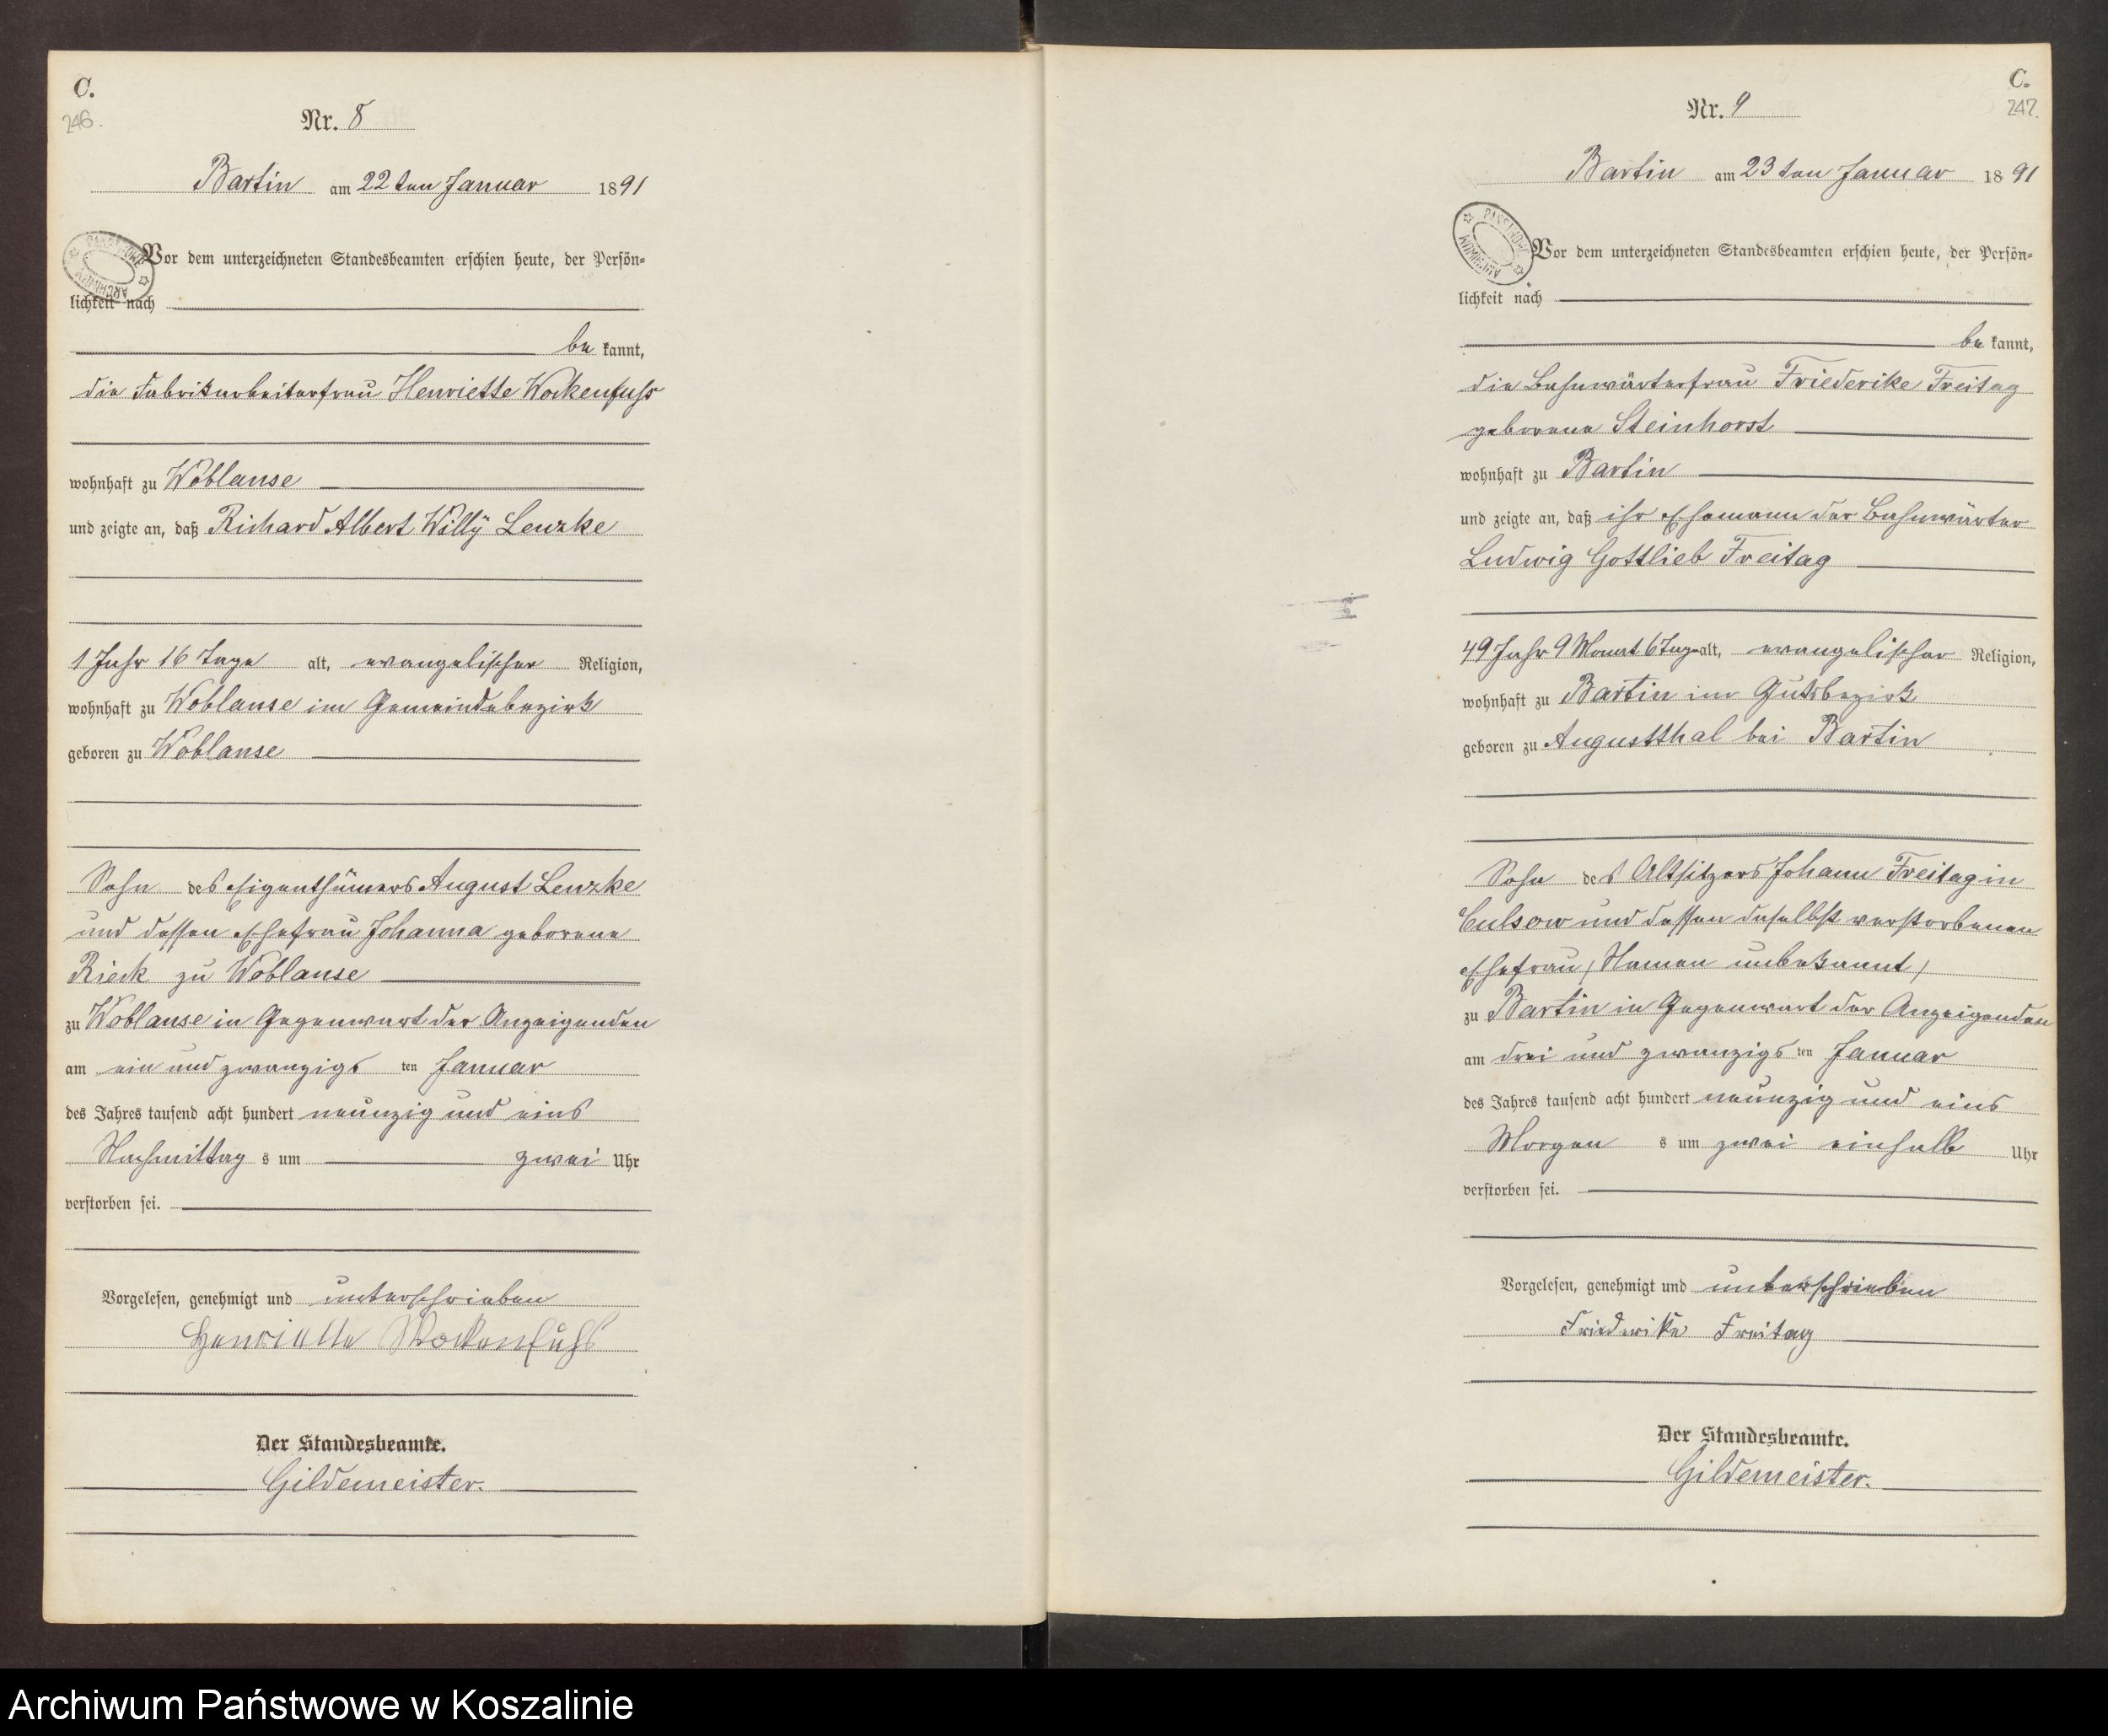 C.
246.
Nr. 8
Bartin am 22ten Januar 1891
PAŃSTWOWE ARCHIWUM
Vor dem unterzeichneten Standesbeamten erschien heute, der Persön-
lichkeit nach
be kannt,
die Fabrikarbeiterfrau Henriette Wockenfuss
wohnhaft zu Woblanse
und zeigte an, daß Richard Albert Willÿ Lenzke
1 Jahr 16 Tage alt, evangelischer Religion,
wohnhaft zu Woblanse im Gemeindebezirk
geboren zu Woblanse
Sohn des Eigenthümers August Lenzke
und dessen Ehefrau Johanna geborene
Rieck zu Woblanse
zu Woblanse in Gegenwart der Anzeigenden
am ein und zwanzigs ten Januar
des Jahres tausend acht hundert neunzig und eins
Nachmittag s um zwei Uhr
verstorben sei.
Vorgelesen, genehmigt und unterschrieben
Henriette Wockenfuhs
Der Standesbeamte.
Gildemeister.
C.
247.
Nr. 9
Bartin am 23ten Januar 1891
PAŃSTWOWE ARCHIWUM
Vor dem unterzeichneten Standesbeamten erschien heute, der Persön-
lichkeit nach
be kannt,
die Bahnwärterfrau Friederike Freitag
geborene Steinhorst
wohnhaft zu Bartin
und zeigte an, daß ihr Ehemann der Bahnwärter
Ludwig Gottlieb Freitag
49 Jahr 9 Monat 6 Tage alt, evangelischer Religion,
wohnhaft zu Bartin im Gutsbezirk
geboren zu Augustthal bei Bartin
Sohn des Altsitzers Johann Freitag in
Culsow und dessen daselbst verstorbenen
Ehefrau / Namen unbekannt /
zu Bartin in Gegenwart der Anzeigenden
am drei und zwanzigs ten Januar
des Jahres tausend acht hundert neunzig und eins
Morgen s um zwei einhalb Uhr
verstorben sei.
Vorgelesen, genehmigt und unterschrieben
Friederike Freitag
Der Standesbeamte.
Gildemeister.
Archiwum Państwowe w Koszalinie